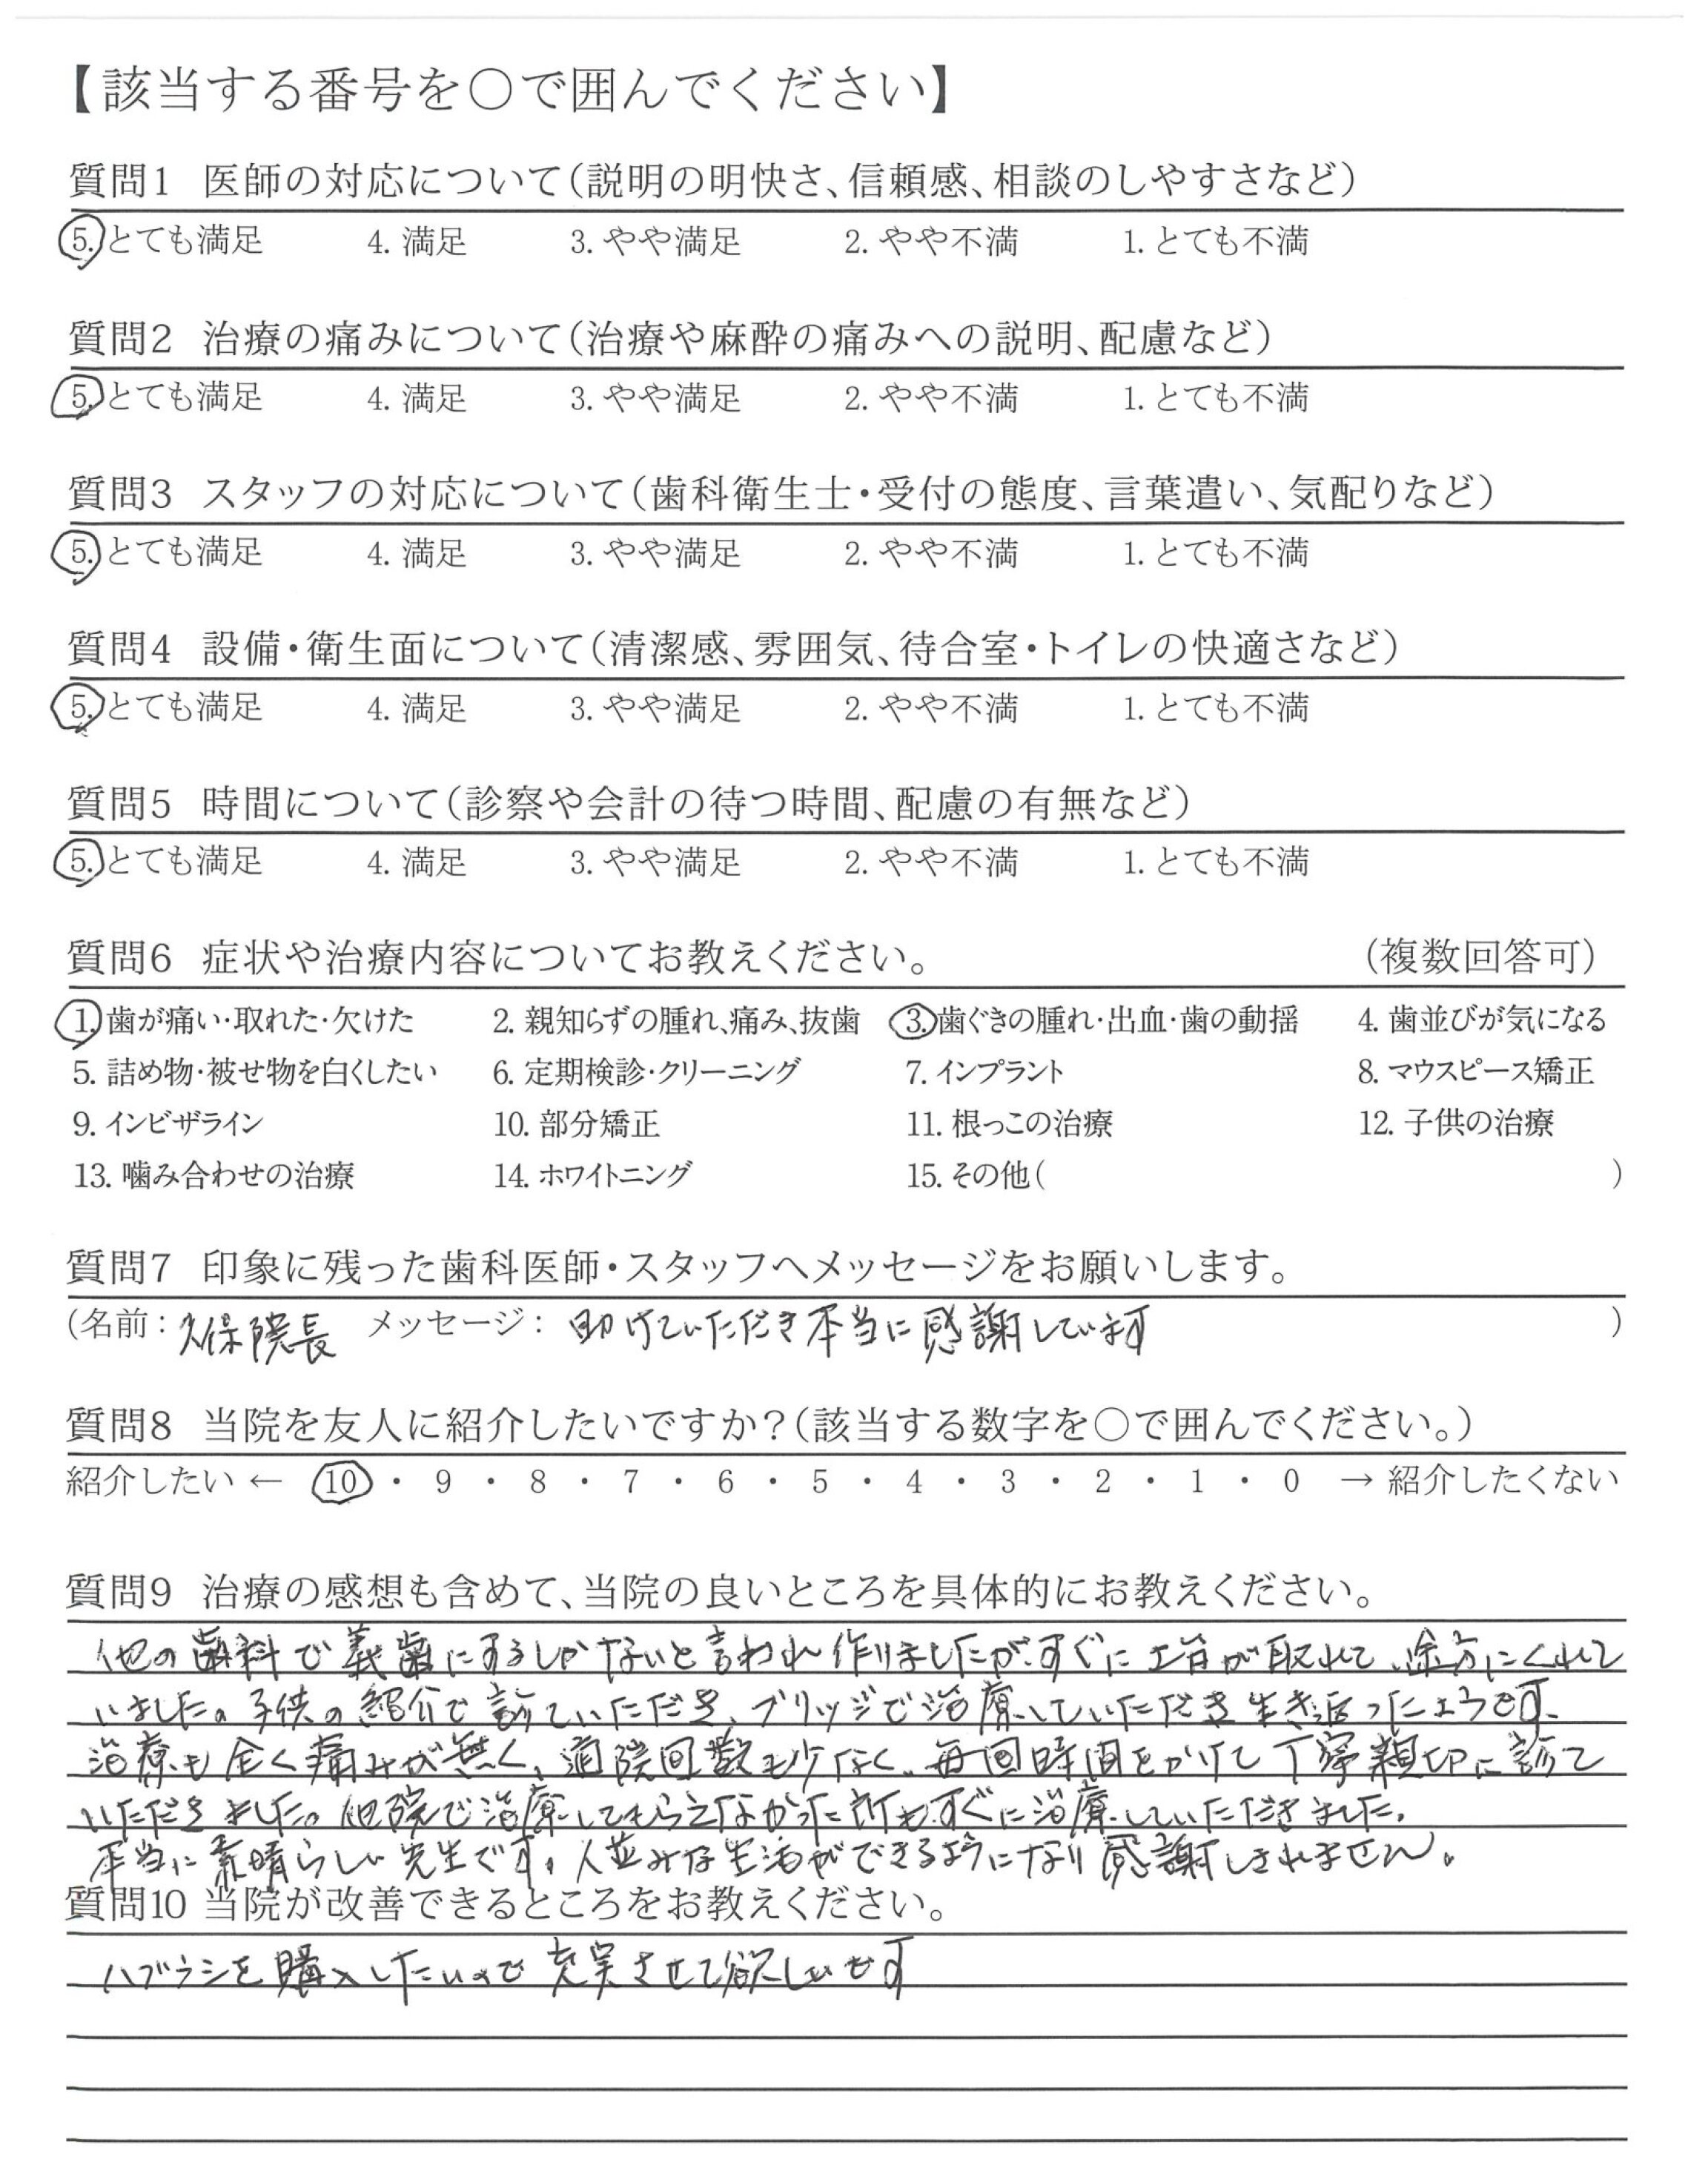 【該当する番号を〇で囲んでください】
質問1 医師の対応について(説明の明快さ、信頼感、相談のしやすさなど)
5. とても満足 4. 満足 3. やや満足 2. やや不満 1. とても不満
質問2 治療の痛みについて(治療や麻酔の痛みへの説明、配慮など)
5. とても満足 4. 満足 3. やや満足 2. やや不満 1. とても不満
質問3 スタッフの対応について(歯科衛生士・受付の態度、言葉遣い、気配りなど)
5. とても満足 4. 満足 3. やや満足 2. やや不満 1. とても不満
質問4 設備・衛生面について(清潔感、雰囲気、待合室・トイレの快適さなど)
5. とても満足 4. 満足 3. やや満足 2. やや不満 1. とても不満
質問5 時間について(診察や会計の待つ時間、配慮の有無など)
5. とても満足 4. 満足 3. やや満足 2. やや不満 1. とても不満
質問6 症状や治療内容についてお教えください。 (複数回答可)
1. 歯が痛い・取れた・欠けた 2. 親知らずの腫れ、痛み、抜歯 3. 歯ぐきの腫れ・出血・歯の動揺 4. 歯並びが気になる
5. 詰め物・被せ物を白くしたい 6. 定期検診・クリーニング 7. インプラント 8. マウスピース矯正
9. インビザライン 10. 部分矯正 11. 根っこの治療 12. 子供の治療
13. 噛み合わせの治療 14. ホワイトニング 15. その他( )
質問7 印象に残った歯科医師・スタッフへメッセージをお願いします。
(名前: 久保院長 メッセージ: 助けていただき本当に感謝しています )
質問8 当院を友人に紹介したいですか?(該当する数字を〇で囲んでください。)
紹介したい ← 10 ・ 9 ・ 8 ・ 7 ・ 6 ・ 5 ・ 4 ・ 3 ・ 2 ・ 1 ・ 0 → 紹介したくない
質問9 治療の感想も含めて、当院の良いところを具体的にお教えください。
他の歯科で義歯にするしかないと言われ作りましたが、すぐに土台が取れて、途方にくれて
いました。子供の紹介で診ていただき、ブリッジで治療していただき生き返ったようです。
治療も全く痛みが無く、通院回数も少なく、毎回時間をかけて丁寧親切に診て
いただきました。他院で治療してもらえなかった所もすぐに治療していただきました。
本当に素晴らしい先生です。人並みな生活ができるようになり感謝しきれません。
質問10 当院が改善できるところをお教えください。
ハブラシを購入したいので充実させて欲しいです